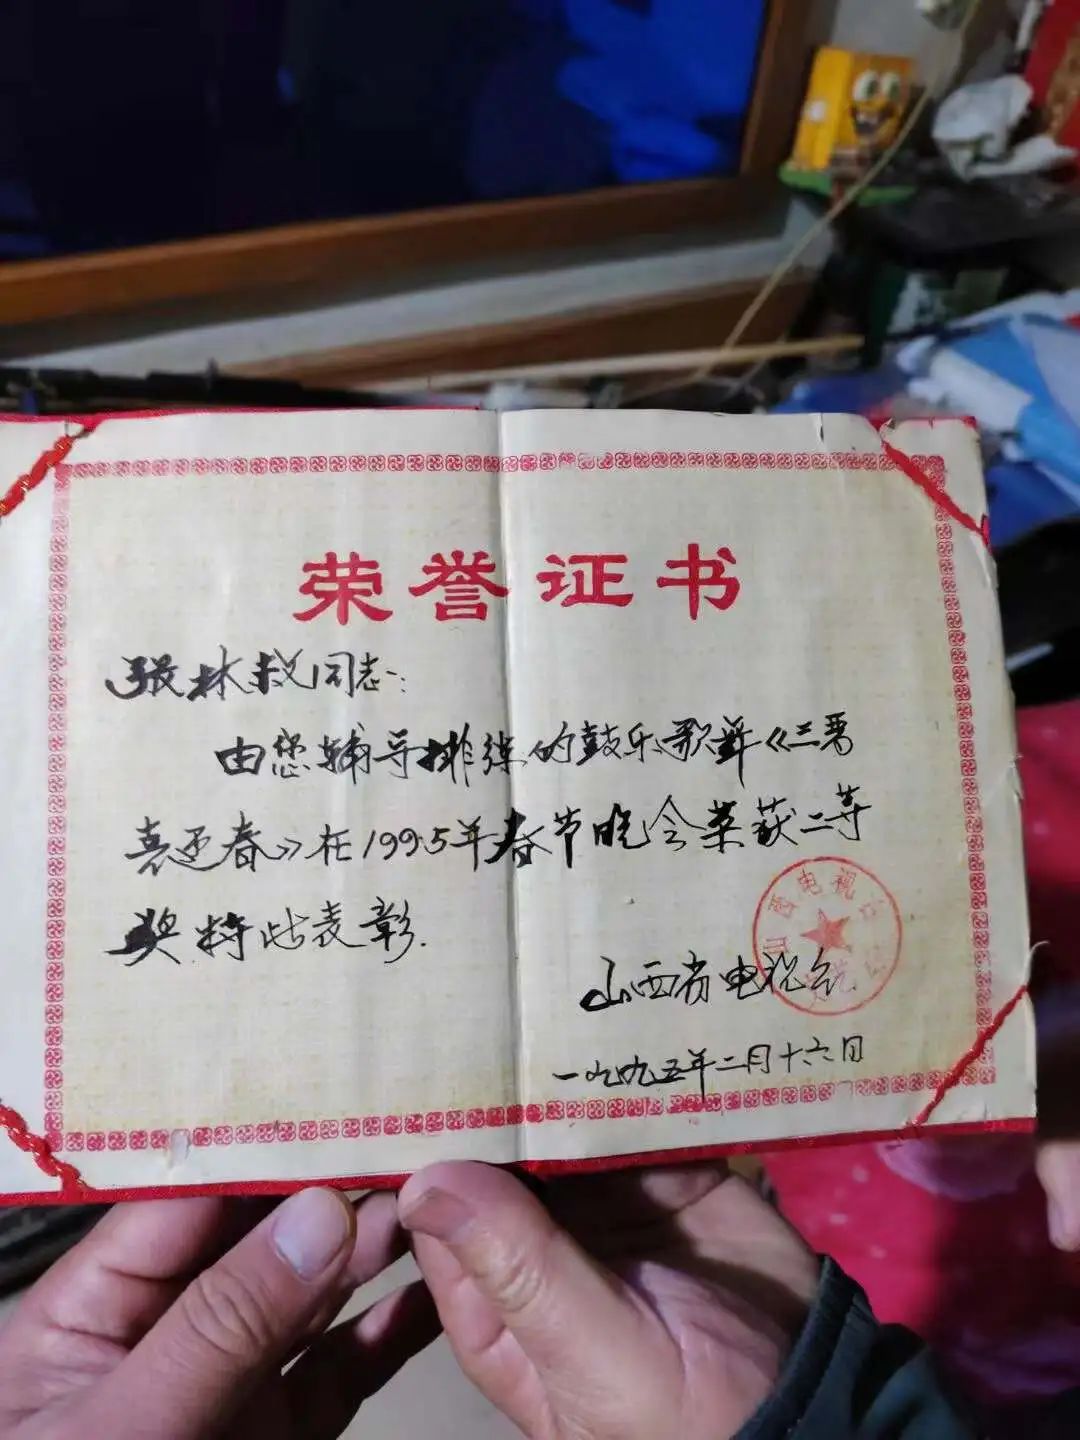 荣誉证书
张林救同志:
由您辅导排练的鼓乐歌舞《三晋
喜迎春》在1995年春节晚会荣获二等
奖特此表彰.
山西电视台
山西省电视台
一九九五年二月十六日